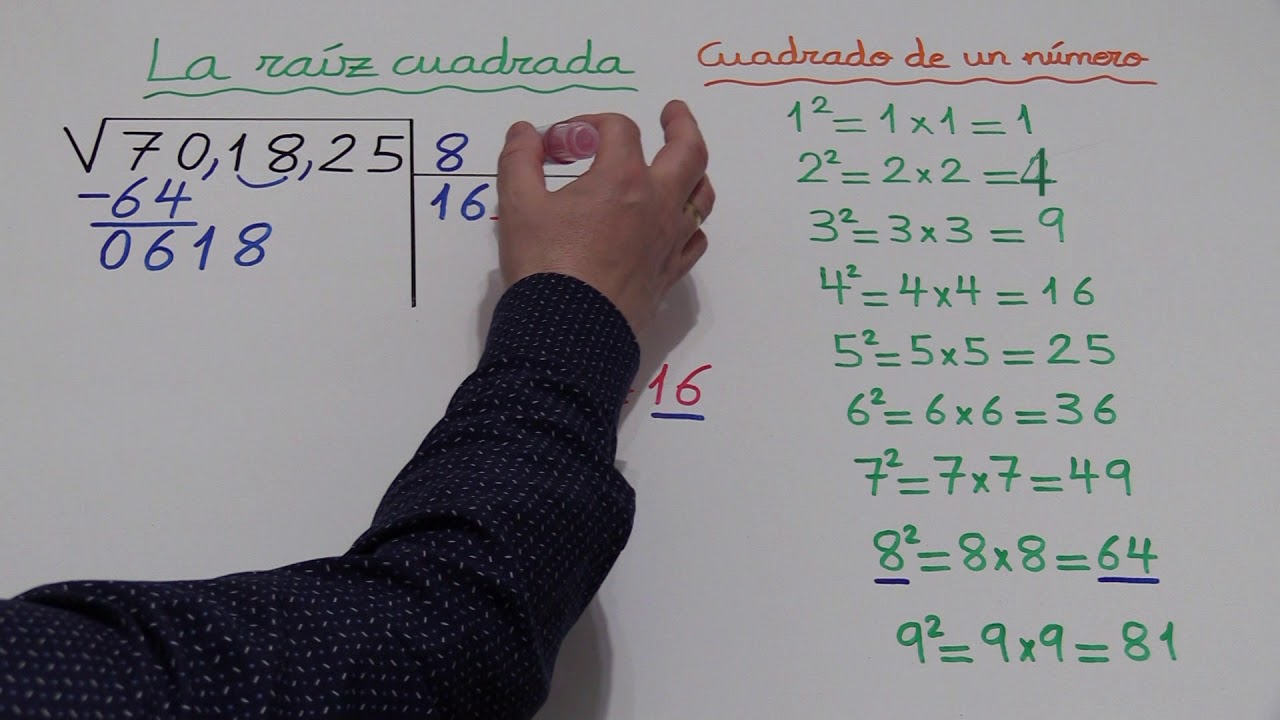 La raíz cuadrada
√70,18,25 8
-64 16
0618
16
Cuadrado de un número
1²=1x1=1
2²=2x2=4
3²=3x3=9
4²=4x4=16
5²=5x5=25
6²=6x6=36
7²=7x7=49
8²=8x8=64
9²=9x9=81